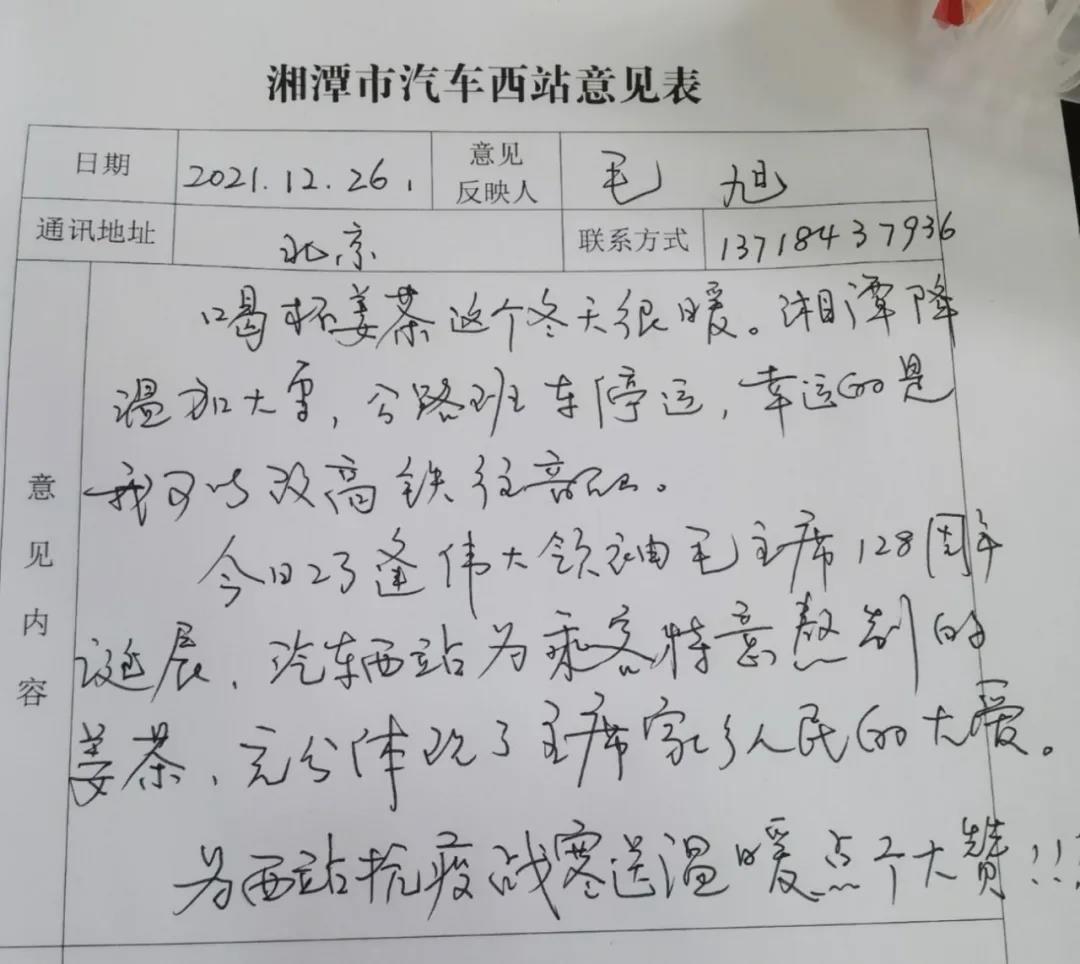 湘潭市汽车西站意见表
日期 2021.12.26. 意见反映人 毛旭
通讯地址 北京 联系方式 13718437936
意见内容
喝杯姜茶这个冬天很暖。湘潭降
温加大雪,公路班车停运,幸运的是
我可以改高铁往韶山。
今日巧逢伟大领袖毛主席128周年
诞辰、汽车西站为乘客特意熬制的
姜茶、充分体现了主席家乡人民的大爱。
为西站抗疫战寒送温暖点个大赞!!!